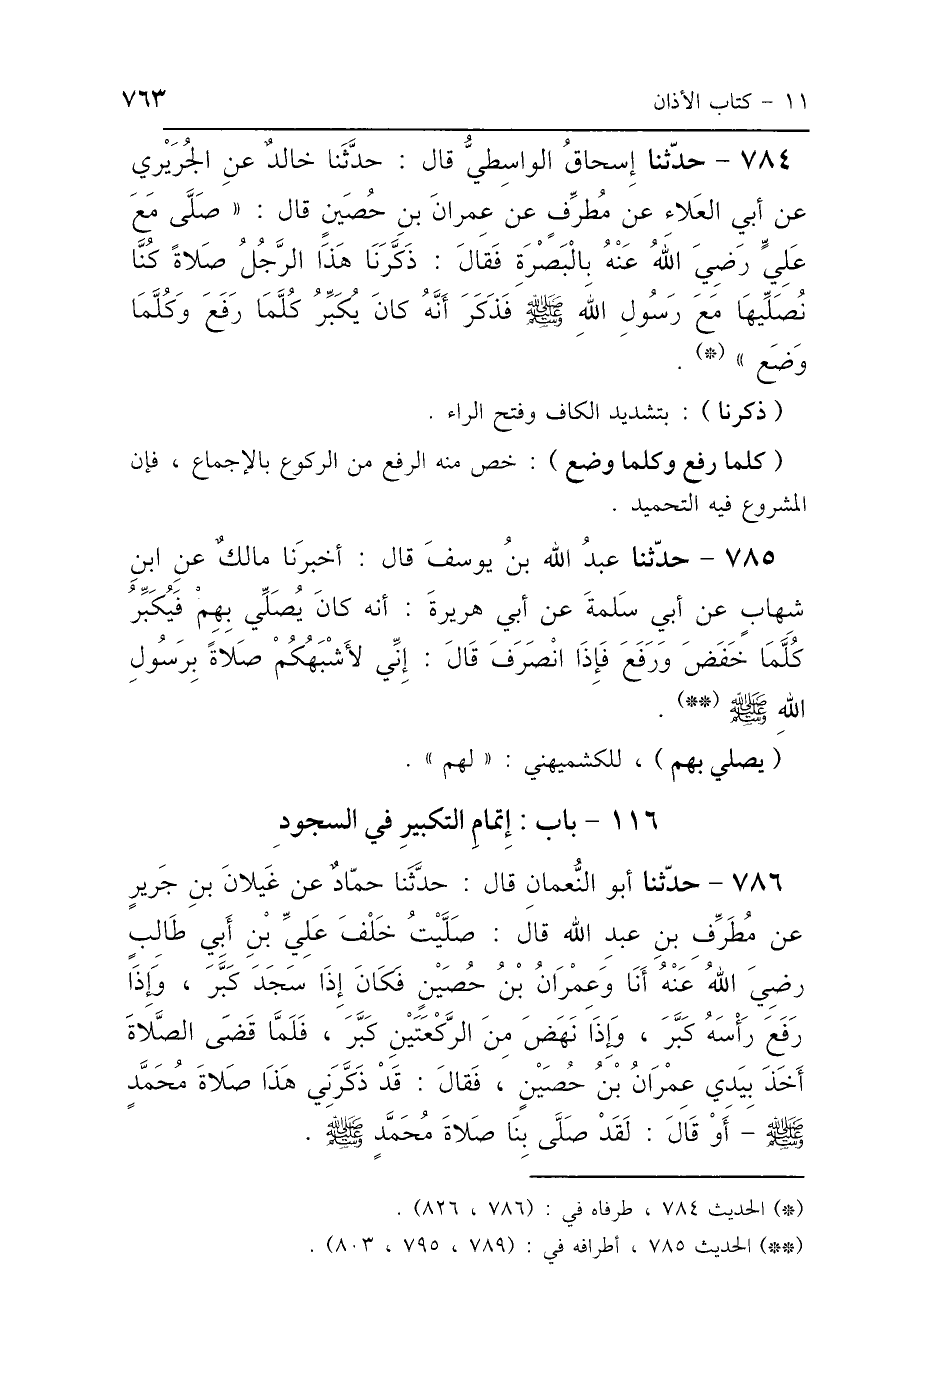 ١١ - كتاب الأذان ٧٦٣
٧٨٤ - حدّثنا إسحاقُ الواسطيُّ قال : حدَّثَنا خالدٌ عنِ الجُرَيْري
عن أبي العَلاءِ عن مُطرِّفٍ عن عمرانَ بنِ حُصَينٍ قال : « صلَّى مَعَ
عَلِيٍّ رَضِيَ اللهُ عَنْهُ بِالْبَصْرَةِ فَقالَ : ذَكَّرَنَا هَذَا الرَّجُلُ صَلاةً كُنَّا
نُصَلِّيهَا مَعَ رَسُولِ اللهِ ﷺ فَذَكَرَ أَنَّهُ كانَ يُكَبِّرُ كُلَّمَا رَفَعَ وَكُلَّمَا
وَضَعَ » (*) .
( ذكرنا ) : بتشديد الكاف وفتح الراء .
( كلما رفع وكلما وضع ) : خص منه الرفع من الركوع بالإجماع ، فإن
المشروع فيه التحميد .
٧٨٥ - حدّثنا عبدُ الله بنُ يوسفَ قال : أخبرَنا مالكٌ عنِ ابنِ
شهابٍ عن أبي سَلمةَ عن أبي هريرةَ : أنه كانَ يُصَلِّي بِهِمْ فَيُكَبِّرُ
كُلَّمَا خَفَضَ وَرَفَعَ فَإِذَا انْصَرَفَ قَالَ : إِنِّي لأَشْبَهُكُمْ صَلاةً بِرَسُولِ
اللهِ ﷺ (**) .
( يصلي بهم ) ، للكشميهني : « لهم » .
١١٦ - باب : إتمامِ التكبيرِ في السجودِ
٧٨٦ - حدّثنا أبو النُّعمانِ قال : حدَّثَنا حمّادٌ عن غَيلانَ بنِ جَريرٍ
عن مُطَرِّفِ بنِ عبدِ الله قال : صَلَّيْتُ خَلْفَ عَلِيِّ بْنِ أَبِي طَالِبٍ
رضِيَ اللهُ عَنْهُ أَنَا وَعِمْرَانُ بْنُ حُصَيْنٍ فَكَانَ إِذَا سَجَدَ كَبَّرَ ، وَإِذَا
رَفَعَ رَأْسَهُ كَبَّرَ ، وَإِذَا نَهَضَ مِنَ الرَّكْعَتَيْنِ كَبَّرَ ، فَلَمَّا قَضَى الصَّلاةَ
أَخَذَ بِيَدِي عِمْرَانُ بْنُ حُصَيْنٍ ، فَقالَ : قَدْ ذَكَّرَنِي هَذَا صَلاةَ مُحَمَّدٍ
ﷺ - أَوْ قَالَ : لَقَدْ صَلَّى بِنَا صَلاةَ مُحَمَّدٍ ﷺ .
(*) الحديث ٧٨٤ ، طرفاه في : (٧٨٦ ، ٨٢٦) .
(**) الحديث ٧٨٥ ، أطرافه في : (٧٨٩ ، ٧٩٥ ، ٨٠٣) .